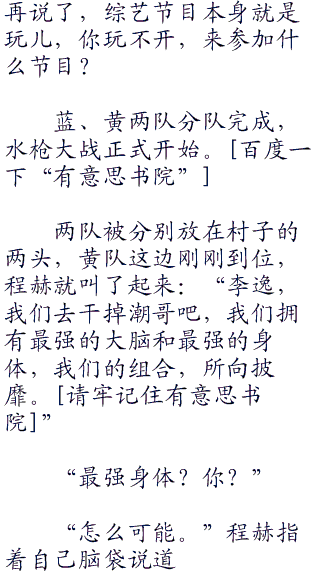 再说了，综艺节目本身就是
玩儿，你玩不开，来参加什
么节目？
蓝、黄两队分队完成，
水枪大战正式开始。[百度一
下“有意思书院”]
两队被分别放在村子的
两头，黄队这边刚刚到位，
程赫就叫了起来：“李逸，
我们去干掉潮哥吧，我们拥
有最强的大脑和最强的身
体，我们的组合，所向披
靡。[请牢记住有意思书
院]”
“最强身体？你？”
“怎么可能。”程赫指
着自己脑袋说道